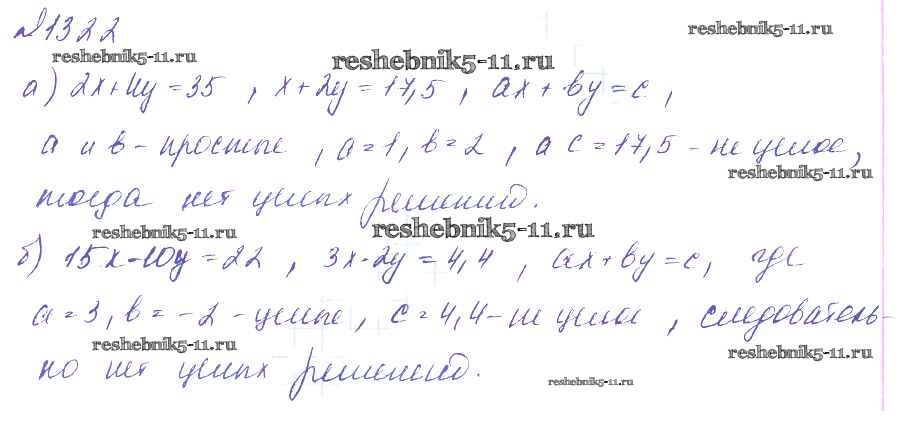 №1322
reshebnik5-11.ru
reshebnik5-11.ru
reshebnik5-11.ru
а) 2x+4y=35, x+2y=17,5, ax+by=c,
a и b - простые, a=1, b=2, а c=17,5 - не целое,
reshebnik5-11.ru
тогда нет целых решений.
reshebnik5-11.ru
reshebnik5-11.ru
б) 15x-10y=22, 3x-2y=4,4, ax+by=c, где
a=3, b=-2 - целые, c=4,4 - не целое, следователь-
reshebnik5-11.ru
reshebnik5-11.ru
но нет целых решений.
reshebnik5-11.ru